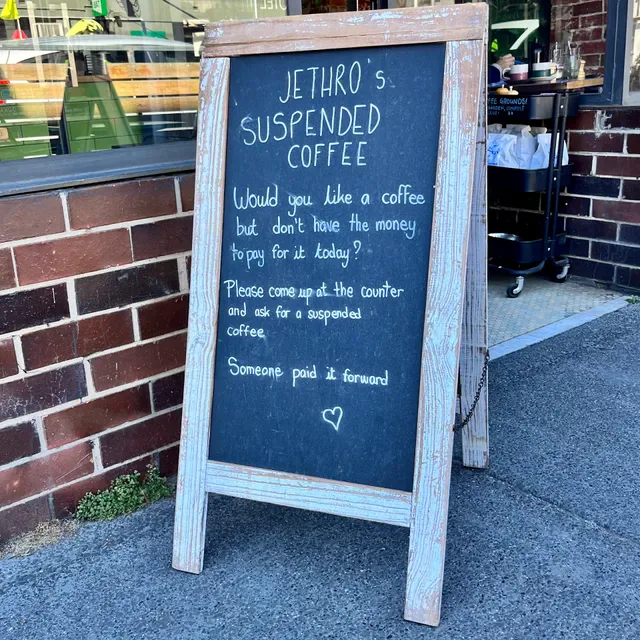 JETHRO's
SUSPENDED
COFFEE
Would you like a coffee
but don't have the money
to pay for it today?
Please come up at the counter
and ask for a suspended
coffee
Someone paid it forward
7
GROUNDS!